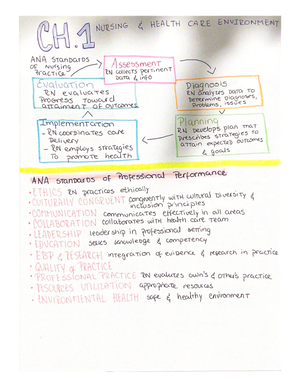 CH.1 NURSING & HEALTH CARE ENVIRONMENT
ANA Standards
of Nursing
Practice
Assessment
RN collects pertinent
Data & info
Diagnosis
RN analyzes data to
Determine diagnoses,
Problems, issues
Planning
RN Develops plan that
Prescribes strategies to
attain expected outcomes
& goals
Implementation
- RN coordinates care
Delivery
- RN employs strategies
To promote health
Evaluation
RN evaluates
Progress toward
attainment of outcomes
ANA Standards of Professional Performance
• ETHICS RN practices ethically
• CULTURALLY CONGRUENT congruently with cultural diversity &
inclusion principles
• COMMUNICATION communicates effectively in all areas
• COLLABORATION collaborates with health care team
• LEADERSHIP leadership in professional setting
• EDUCATION seeks knowledge & competency
• EBP & RESEARCH integration of evidence & research in practice
• QUALITY OF PRACTICE
• PROFESSIONAL PRACTICE RN evaluates own's & other's practice
• RESOURCES UTILIZATION appropriate resources
• ENVIRONMENTAL HEALTH safe & healthy environment